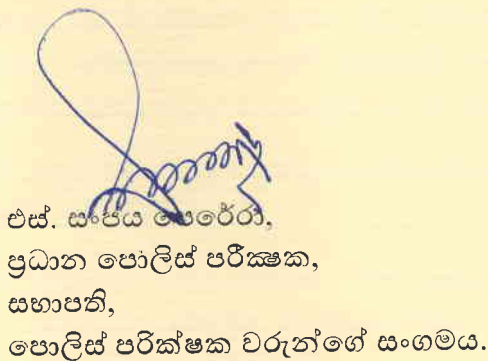 එස්. සංජය පෙරේරා,
ප්‍රධාන පොලිස් පරීක්ෂක,
සභාපති,
පොලිස් පරික්ෂක වරුන්ගේ සංගමය.